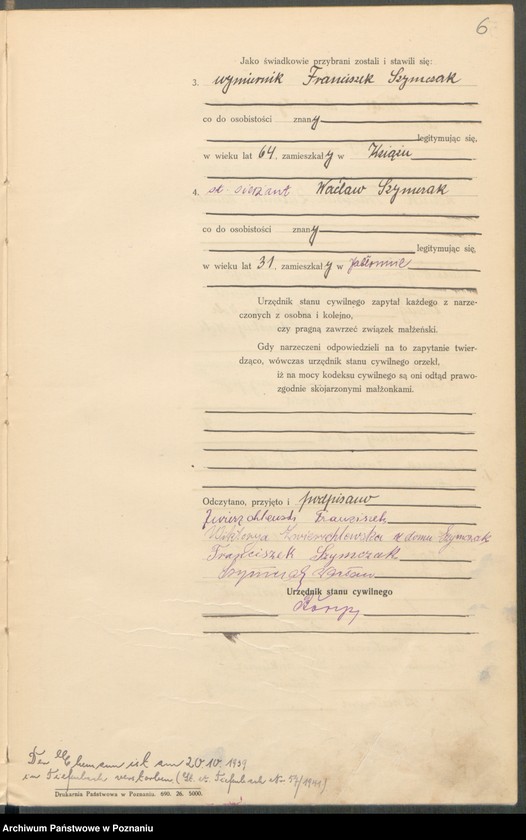 6
Jako świadkowie przybrani zostali i stawili się:
3. wymiernik Franciszek Szymczak
co do osobistości znany
legitymując się,
w wieku lat 64, zamieszkały w Książu
4. st. sierżant Wacław Szymczak
co do osobistości znany
legitymując się,
w wieku lat 31, zamieszkały w
Urzędnik stanu cywilnego zapytał każdego z narze-
czonych z osobna i kolejno,
czy pragną zawrzeć związek małżeński.
Gdy narzeczeni odpowiedzieli na to zapytanie twier-
dząco, wówczas urzędnik stanu cywilnego orzekł,
iż na mocy kodeksu cywilnego są oni odtąd prawo-
zgodnie skojarzonymi małżonkami.
Odczytano, przyjęto i podpisano
Franciszek
Wiktorya Zwierzchlewska z domu Szymczak
Franciszek Szymczak
Szymczak Wacław
Urzędnik stanu cywilnego
Der Ehemann ist am 20.10.1939
in verstorben
Drukarnia Państwowa w Poznaniu. 690. 26. 5000.
Archiwum Państwowe w Poznaniu